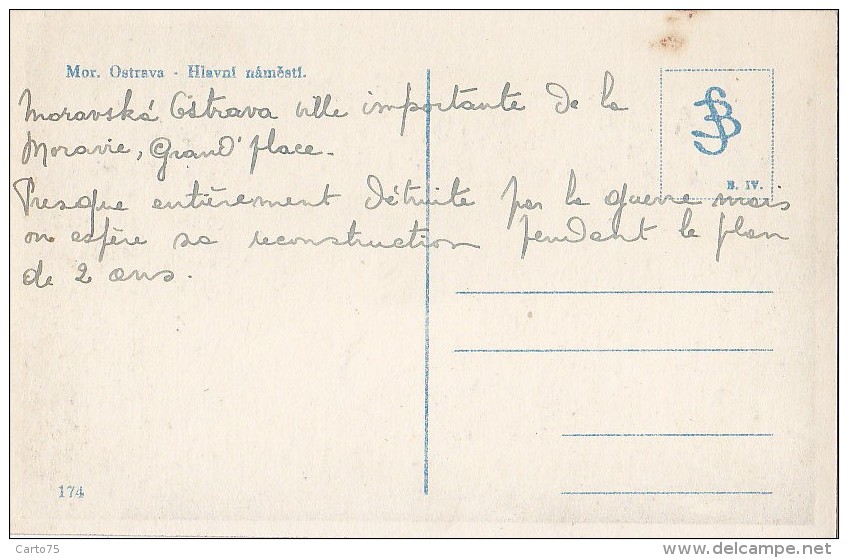 Mor. Ostrava - Hlavní náměstí.
Moravská Ostrava ville importante de la
Moravie, Grand'place.
Presque entièrement détruite par la guerre mais
on espère sa reconstruction pendant le plan
de 2 ans.
B. IV.
174
Carto75
delcampe.com